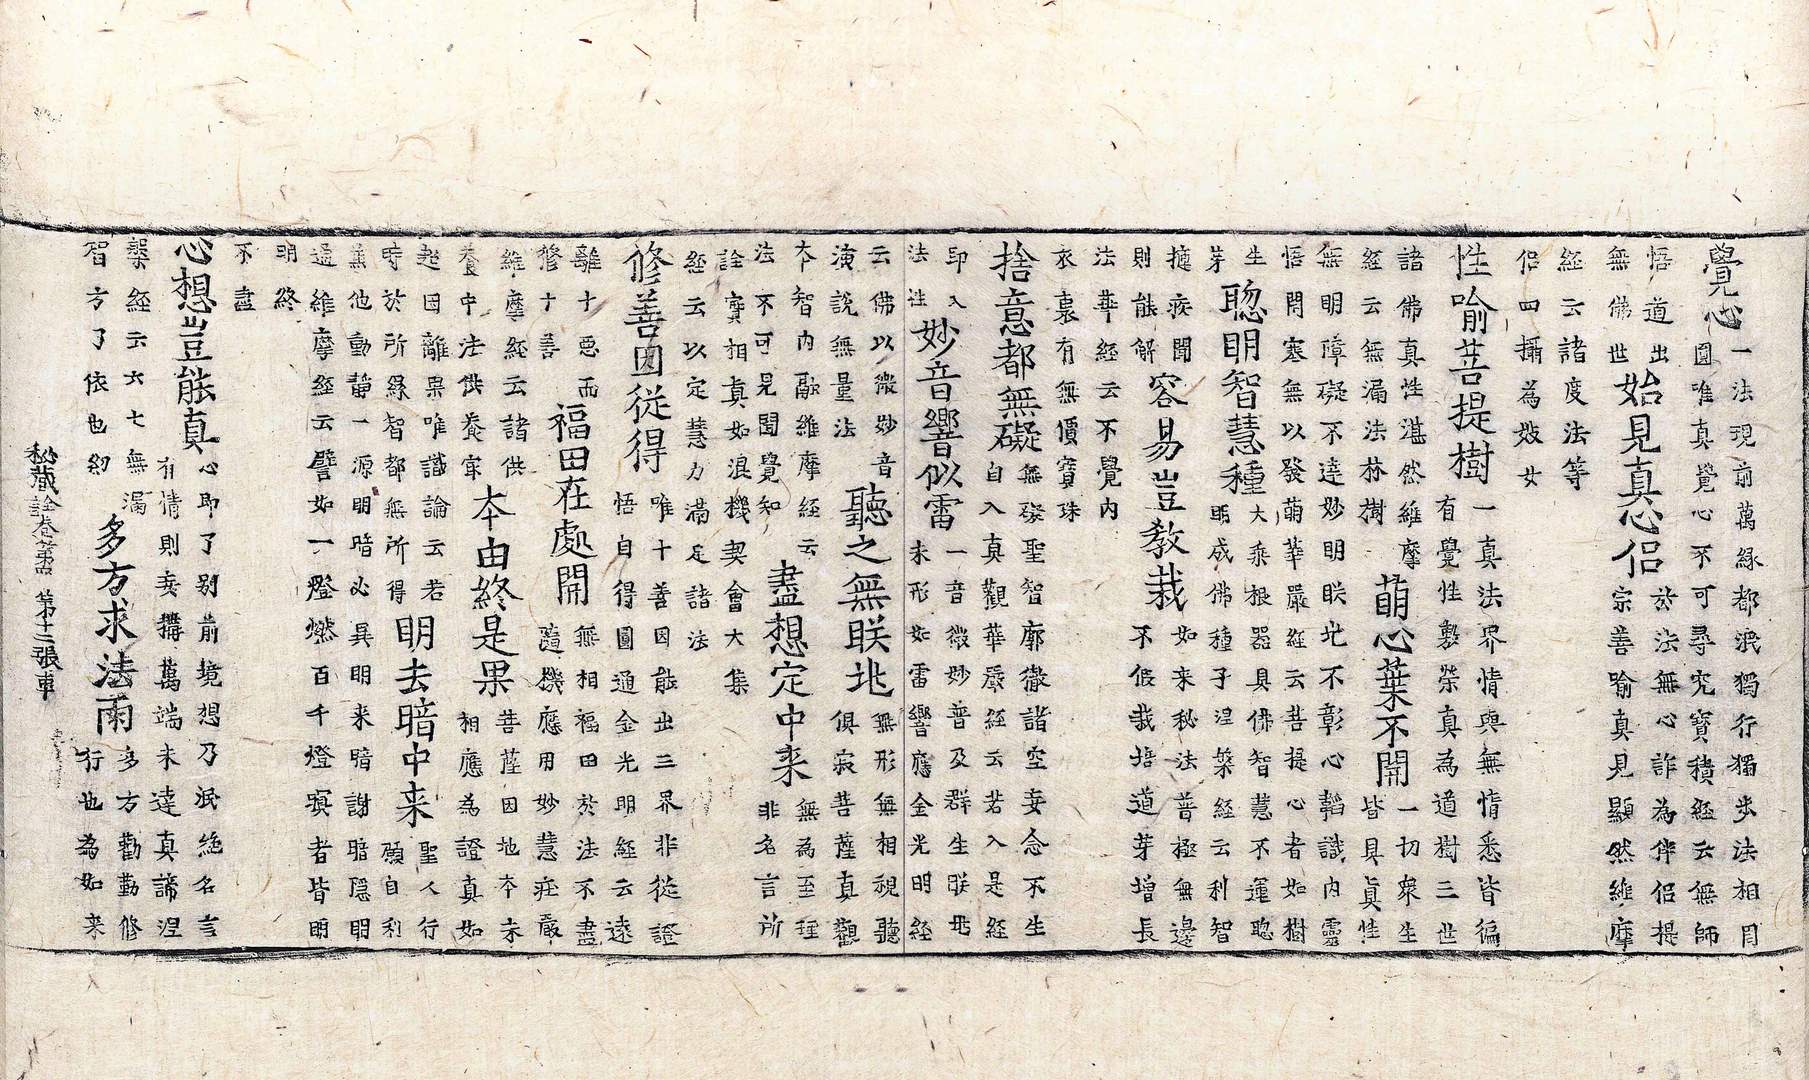 覺心
一法現前萬緣都泯獨行獨步法相自
圓唯真覺心不可尋究寶積經云無師
悟道出
無佛世
始見真心侶
於法無心詐為伴侶提
宗善喻真見顯然維摩
經云諸度法等
侶四攝為妓女
性喻菩提樹
一真法界情與無情悉皆徧
有覺性敷榮真為道樹三世
諸佛真性湛然維摩
經云無漏法林樹
萌心葉不開
一切衆生
皆具真性
無明障礙不達妙明眹兆不彰心韜識內靈
悟閇塞無以發萌華嚴經云菩提心者如樹
生
芽
聦明智慧種
大乘根器具佛智慧不運聦
明成佛種子涅槃經云利智
擿疾聞
則能解
容易豈教栽
如来秘法菩極無邊
不假栽培道芽增長
法華經云不覺內
衣裏有無價寶珠
捨意都無礙
無礙聖智廓徹諸空妄念不生
自入真觀華嚴經云若入是經
印入
法性
妙音響似雷
一音微妙普及群生眹兆
未形如雷響應金光明經
云佛以微妙音
演說無量法
聽之無眹兆
無形無相視聽
俱寂菩薩真觀
本智內融維摩經云
法不可見聞覺知
盡想定中来
無為至理
非名言所
詮實相真如浪機契會大集
經云以定慧力滿足諸法
修善因從得
唯十善因能出三界非從證
悟自得圓通金光明經云遠
離十惡而
修十善
福田在處開
無相福田於法不盡
隨機應用妙慧莊嚴
維摩經云諸供
養中法供養冣
本由終是果
菩薩因地本末
相應為證真如
起因離果唯識論云若
時於所緣智都無所得
明去暗中来
聖人行
願自利
兼他動靜一源明暗必異明来暗謝暗隱明
遍維摩經云譬如一燈燃百千燈冥者皆明
明終
不盡
心想豈能真
心即了别前境想乃泯絶名言
有情則妄搆萬端未達真諦涅
槃經云六七無漏
智方了依也幻
多方求法雨
多方勸勤修
行也為如来
秘藏詮卷第 第十二張 車